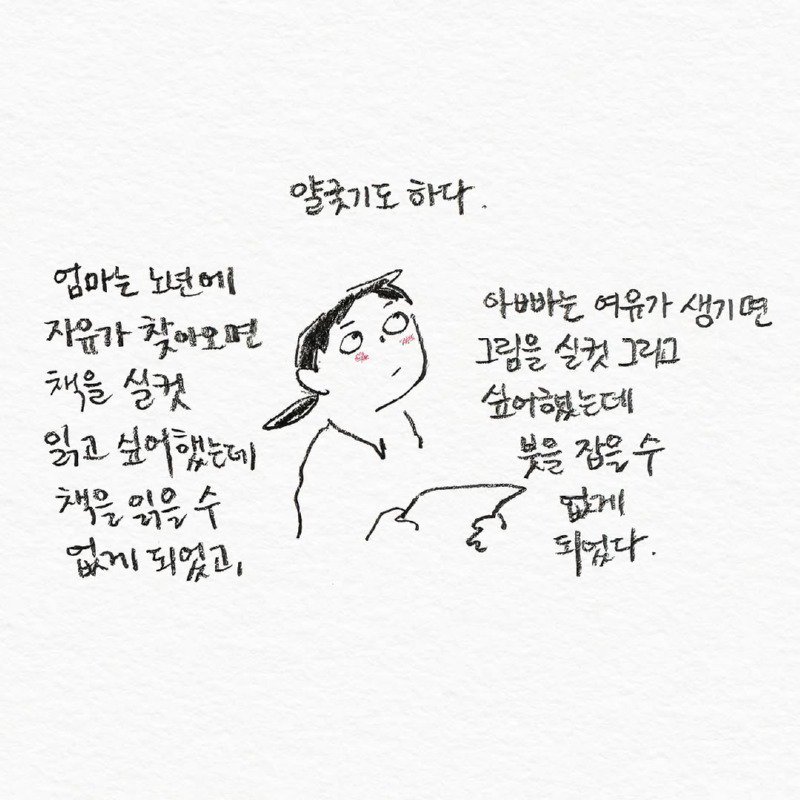 얄궂기도 하다.
엄마는 노년에
자유가 찾아오면
책을 실컷
읽고 싶어했는데
책을 읽을 수
없게 되었고,
아빠는 여유가 생기면
그림을 실컷 그리고
싶어했는데
붓을 잡을 수
없게
되었다.